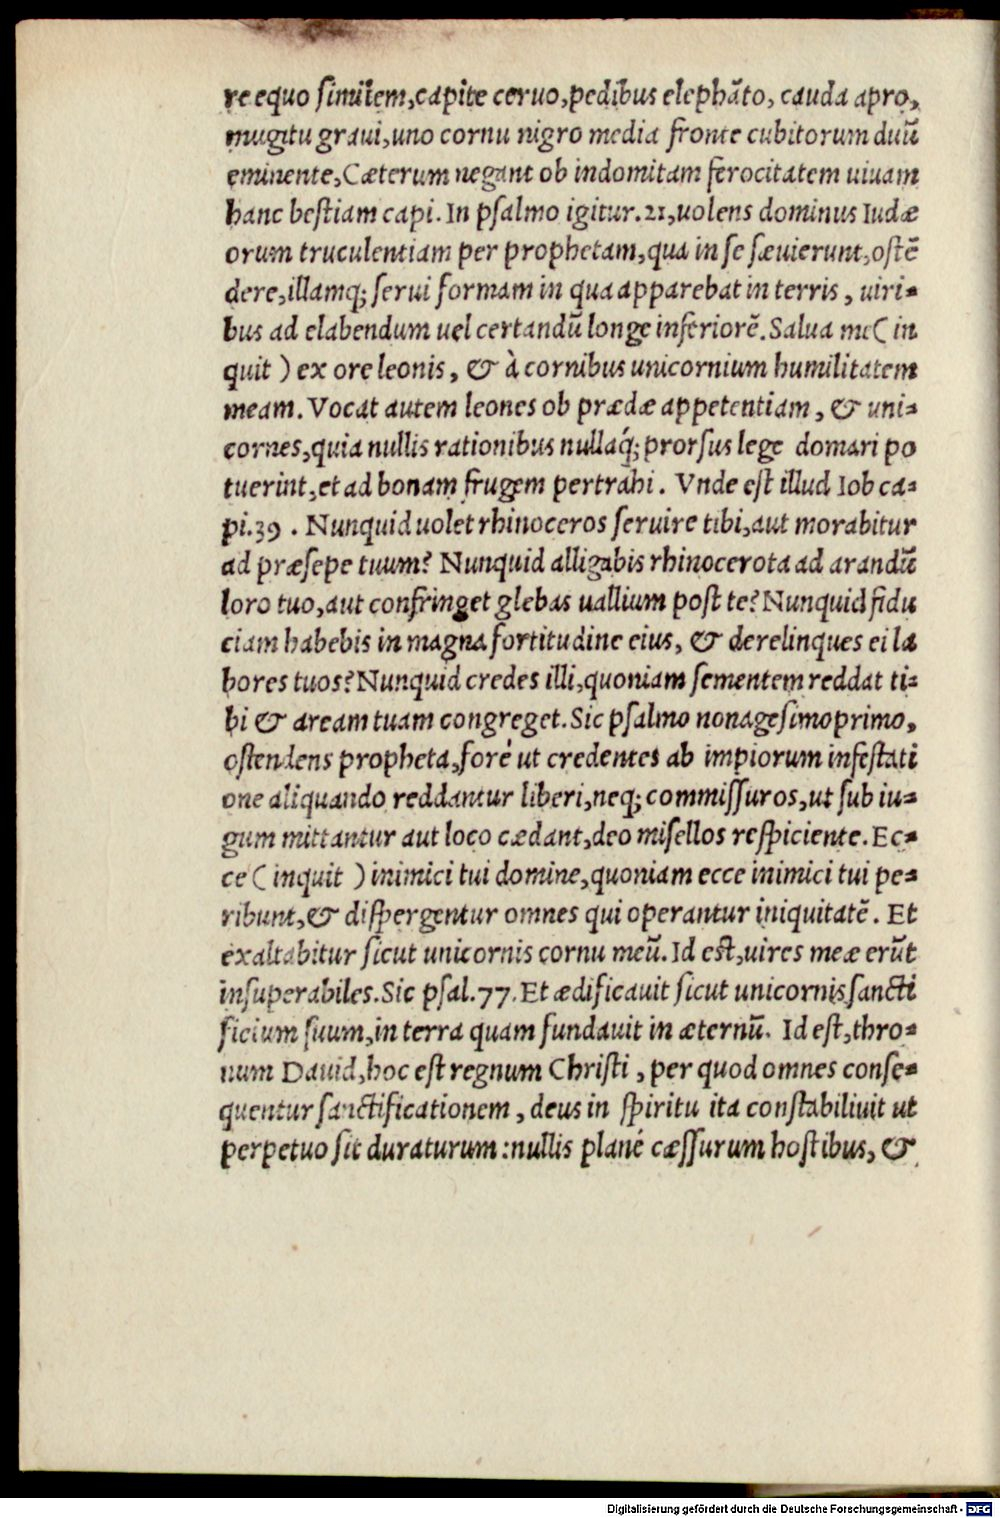 re equo similem, capite ceruo, pedibus elephãto, cauda apro,
mugitu graui, uno cornu nigro media fronte cubitorum duũ
eminente, Cæterum negant ob indomitam ferocitatem uiuam
hanc bestiam capi. In psalmo igitur. 21, uolens dominus Iudæ
orum truculentiam per prophetam, qua in se sæuierunt, ostẽ
dere, illamq; serui formam in qua apparebat in terris, uiri-
bus ad elabendum uel certandũ longe inferiorẽ. Salua me ( in
quit ) ex ore leonis, & à cornibus unicornium humilitatem
meam. Vocat autem leones ob prædæ appetentiam, & uni-
cornes, quia nullis rationibus nullaq́; prorsus lege domari po
tuerint, et ad bonam frugem pertrahi. Vnde est illud Iob ca-
pi. 39 . Nunquid uolet rhinoceros seruire tibi, aut morabitur
ad præsepe tuum? Nunquid alligabis rhinocerota ad arandũ
loro tuo, aut confringet glebas uallium post te? Nunquid fidu
ciam habebis in magna fortitudine eius, & derelinques ei la
bores tuos? Nunquid credes illi, quoniam sementem reddat ti-
bi & aream tuam congreget. Sic psalmo nonagesimoprimo,
ostendens propheta, foré ut credentes ab impiorum infestati
one aliquando reddantur liberi, neq; commissuros, ut sub iu-
gum mittantur aut loco cædant, deo misellos respiciente. Ec-
ce ( inquit ) inimici tui domine, quoniam ecce inimici tui pe-
ribunt, & dispergentur omnes qui operantur iniquitatẽ. Et
exaltabitur sicut unicornis cornu meũ. Id est, uires meæ erũt
insuperabiles. Sic psal. 77. Et ædificauit sicut unicornis sancti
ficium suum, in terra quam fundauit in æternũ. Id est, thro-
num Dauid, hoc est regnum Christi, per quod omnes conse-
quentur sanctificationem, deus in spiritu ita constabiliuit ut
perpetuo sit duraturum: nullis plané cæssurum hostibus, &
Digitalisierung gefördert durch die Deutsche Forschungsgemeinschaft - DFG